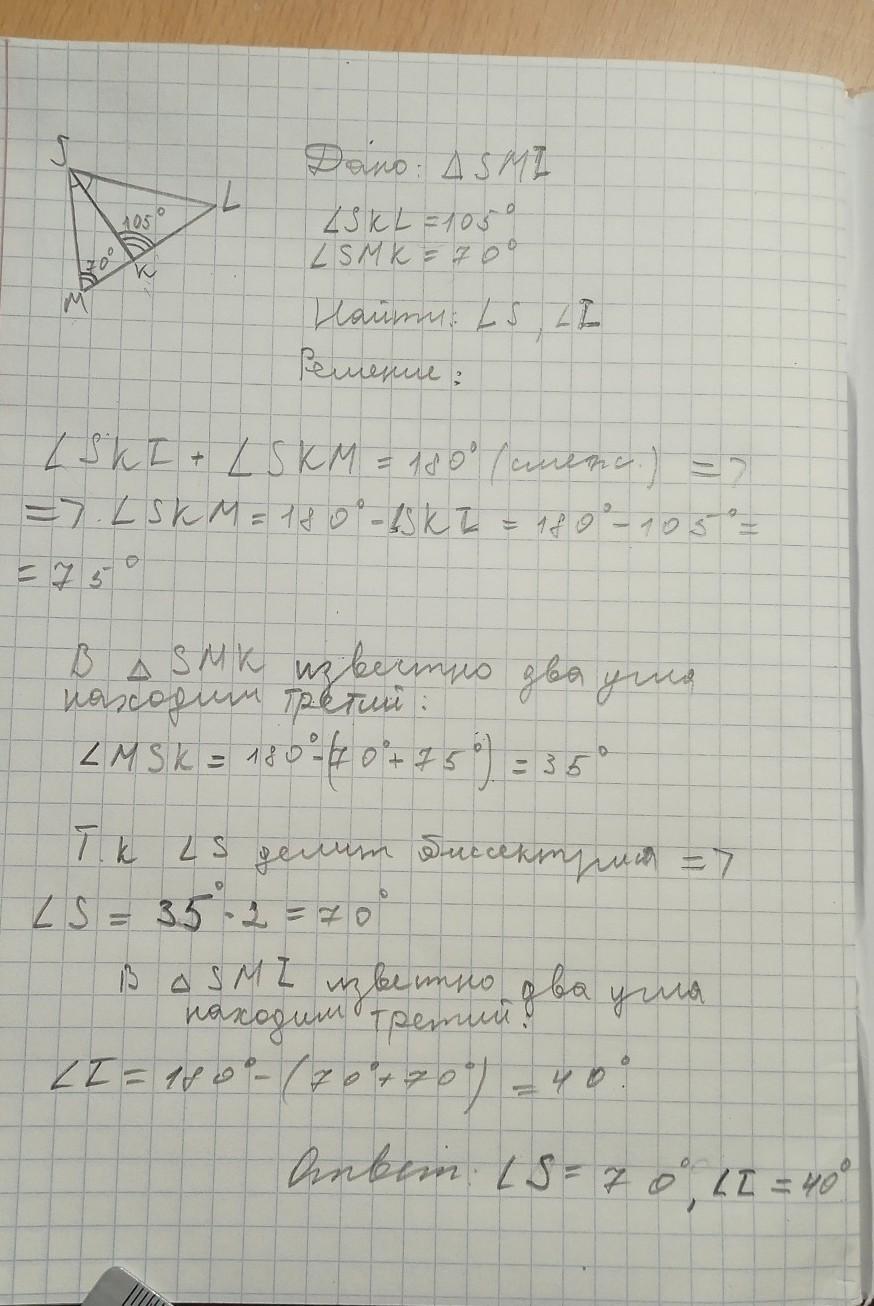 S
L
105°
70°
K
M
Дано: △SMI
∠SKL = 105°
∠SMK = 70°
Найти: ∠S, ∠I
Решение:
∠SKI + ∠SKM = 180° (смежн.) =>
=> ∠SKM = 180° - ∠SKI = 180° - 105° =
= 75°
В △SMK известно два угла
находим третий:
∠MSK = 180° - (70° + 75°) = 35°
Т.к ∠S делит биссектриса =>
∠S = 35° · 2 = 70°
В △SMI известно два угла
находим третий:
∠I = 180° - (70° + 70°) = 40°
Ответ: ∠S = 70°, ∠I = 40°